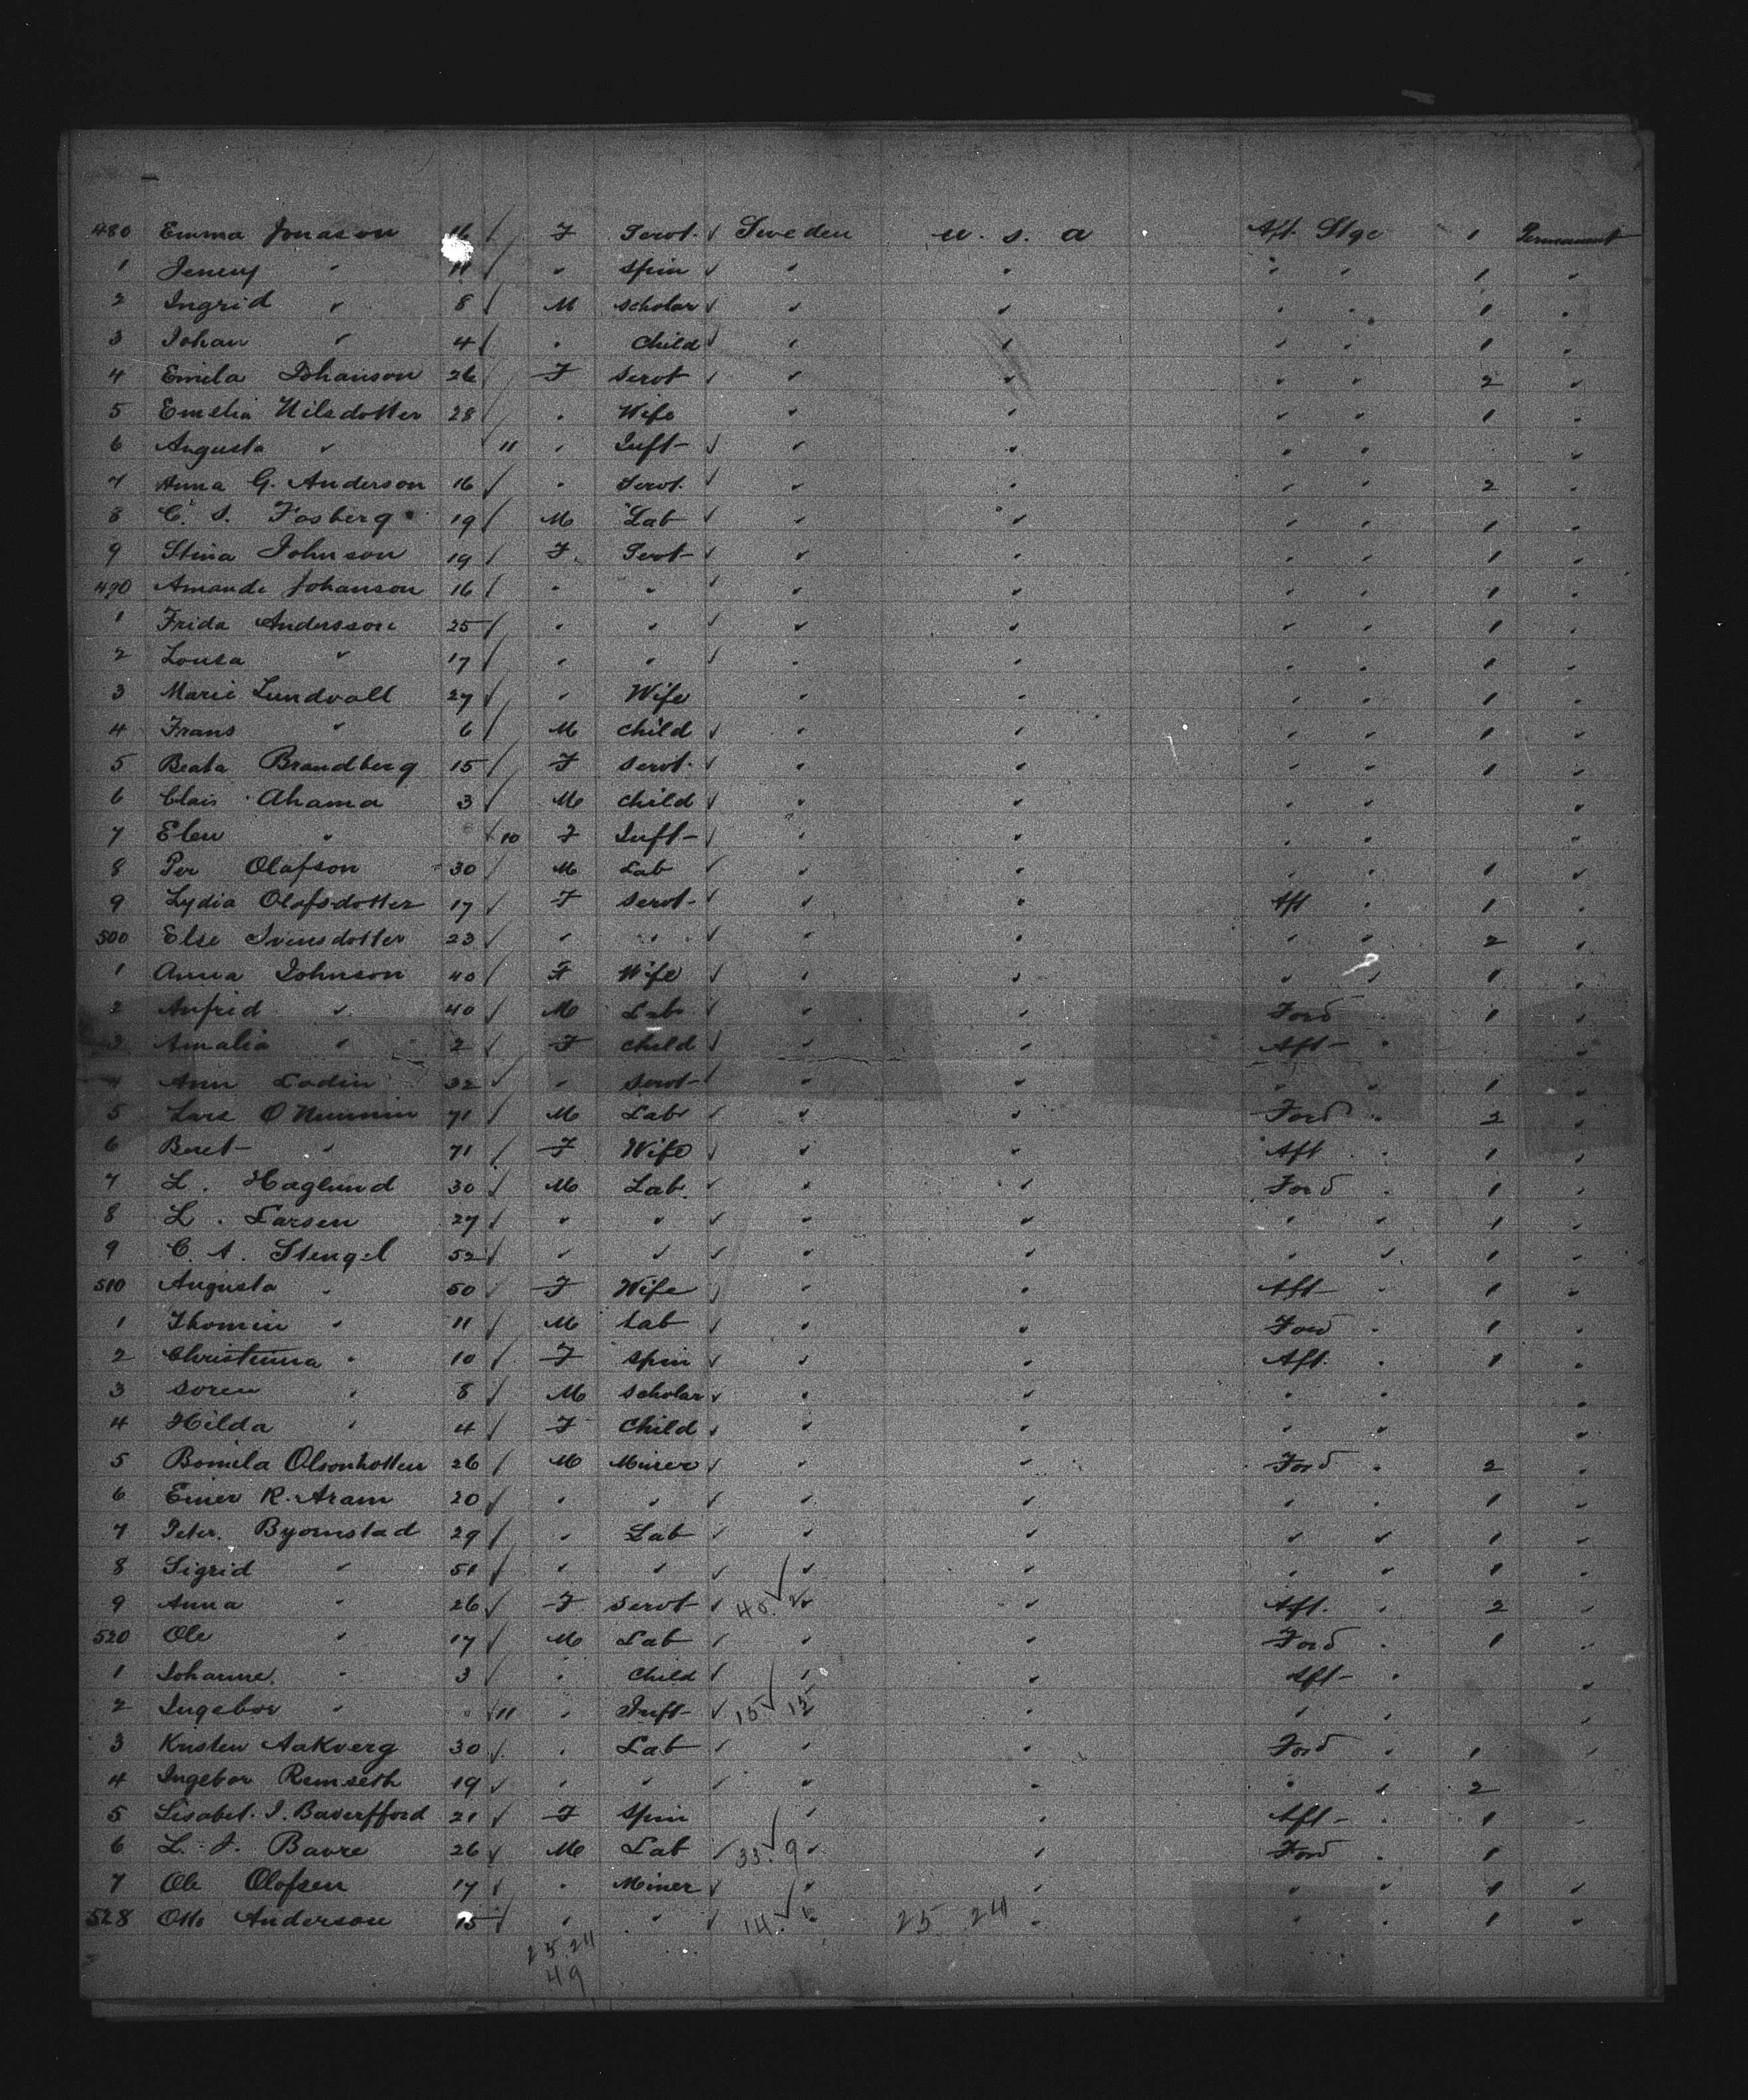 480 Emma Jonason 16 F Servt. Sweden U. S. A Aft. Stge 1 Permanent
1 Jenny " 11 " Spin " " " " 1 "
2 Ingrid " 8 M Scholar " " " " 1 "
3 Johan " 4 " Child " " " " 1 "
4 Emila Johanson 26 F Servt " " " " 2 "
5 Emelia Nilsdotter 28 " Wife " " " " 1 "
6 Augusta " 11 " Inft " " " " "
7 Anna G. Anderson 16 " Servt. " " " " 2 "
8 C. S. Fosberg 19 M Lab " " " " 1 "
9 Stina Johnson 19 F. Servt " " " " 1 "
490 Amanda Johanson 16 " " " " " " 1 "
1 Frida Andersson 25 " " " " " " 1 "
2 Lousa " 17 " " " " " " 1 "
3 Marie Lundvall 27 " Wife " " " " 1 "
4 Frans " 6 M Child " " " " 1 "
5 Beata Brandberg 15 F Servt. " " " " 1 "
6 Clais Ahama 3 M Child " " " " "
7 Elen " 10 F Inft " " " " "
8 Per Olafson 30 M Lab " " " " 1 "
9 Lydia Olafsdotter 17 F Servt " " Aft " 1 "
500 Else Svensdotter 23 " " " " " " 2 "
1 Anna Johnson 40 F Wife " " " " 1 "
2 Anfrid " 40 M Lab " " Ford " 1 "
3 Amalia " 2 F Child " " Aft " "
4 Ann Lodin 32 " Servt " " " " 1 "
5 Lars O Nummin 71 M Lab " " Ford " 2 "
6 Beret " 71 F Wife " " Aft " 1 "
7 L. Haglund 30 M Lab. " " Ford " 1 "
8 L. Larsen 27 " " " " " " 1 "
9 C. A. Stengel 52 " " " " " " 1 "
510 Augusta " 50 F Wife " " Aft " 1 "
1 Thomin " 11 M Lab " " Ford " 1 "
2 Christinna " 10 F Spin " " Aft. " 1 "
3 Soren " 8 M Scholar " " " " "
4 Hilda " 4 F Child " " " " "
5 Bomila Olsonhotten 26 M Miner " " Ford " 2 "
6 Einer R. Aram 20 " " " " " " 1 "
7 Peter. Byornstad 29 " Lab " " " " 1 "
8 Sigrid " 51 " " " " " " 1 "
9 Anna " 26 F Servt 40 " " Aft. " 2 "
520 Ole " 17 M Lab " " Ford " 1 "
1 Johanne. " 3 " Child " " Aft " "
2 Ingebor " 11 " Inft 15 15 " " " "
3 Kristen Aakverg 30 " Lab " " Ford " 1 "
4 Ingebor Remseth 19 " " " " " " 2
5 Lisabet. I. Baverfford 21 F Spin " " Aft " 1 "
6 L. J. Bavre 26 M Lab 33 9 " " Ford " 1
7 Ole Olofsen 17 " Miner " " " " 1 "
528 Otto Anderson 15 " " 14 " 25 24 " " " 1 "
25.24
49